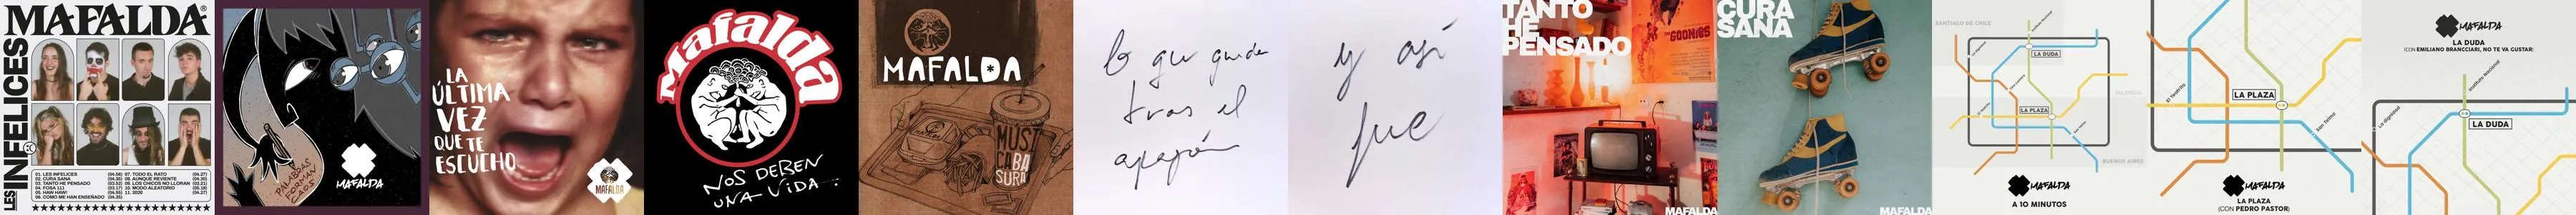 MAFALDA®
LES INFELICES
01. LES INFELICES (04.56)
02. CURA SANA (04.35)
03. TANTO HE PENSADO
04. FOSA 111 (03.17)
05. HAW HAW!
06. COMO ME HAN ENSEÑADO (04.35)
07. TODO EL RATO (04.27)
08. AUNQUE REVIENTE
09. LOS CHICOS NO LLORAN (03.21)
10. MODO ALEATORIO (05.18)
11. 2020 (04.27)
PALABRAS
FORMAN
CAOS
MAFALDA
LA
ÚLTIMA
VEZ
QUE TE
ESCUCHO
MAFALDA
Mafalda
NOS DEBEN
UNA VIDA
MAFALDA
MUSI
CA BA
SURA
lo que queda
tras el
apagón
y así
fue
TANTO
HE
PENSADO
THE GOONIES
MAFALDA
CURA
SANA
MAFALDA
SANTIAGO DE CHILE
Instituto Nacional
LA DUDA
VALENCIA
LA PLAZA
BUENOS AIRES
MAFALDA
A 10 MINUTOS
LA PLAZA
San Telmo
MAFALDA
LA PLAZA
(CON PEDRO PASTOR)
MAFALDA
LA DUDA
(CON EMILIANO BRANCCIARI, NO TE VA GUSTAR)
Instituto Nacional
LA DUDA
La dignidad